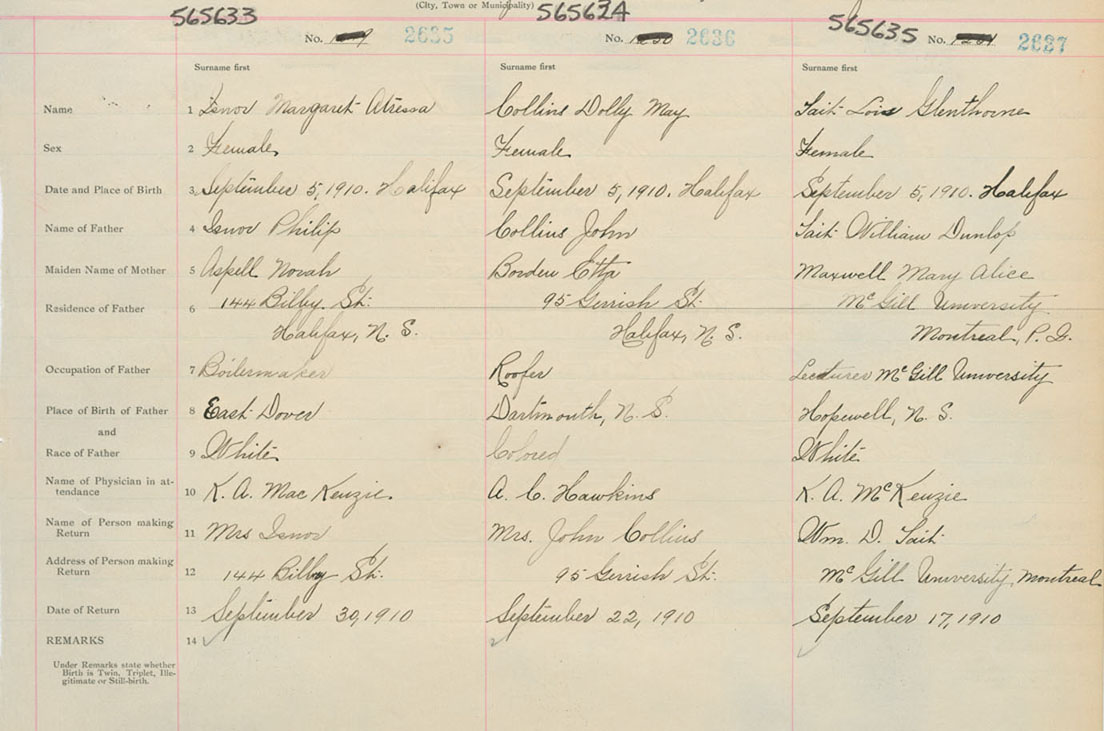 (City, Town or Municipality)
565633 565634 565635
No. 2635 No. 2636 No. 2637
Surname first Surname first Surname first
Name 1 Isnor Margaret Atressa Collins Dolly May Tait Lois Glenthorne
Sex 2 Female Female Female
Date and Place of Birth 3 September 5, 1910. Halifax September 5, 1910. Halifax September 5, 1910. Halifax
Name of Father 4 Isnor Philip Collins John Tait William Dunlop
Maiden Name of Mother 5 Aspell Norah Borden Etta Maxwell Mary Alice
Residence of Father 6 144 Bilby St. 95 Gerrish St. McGill University
Halifax, N. S. Halifax, N. S. Montreal, P. Q.
Occupation of Father 7 Boilermaker Roofer Lecturer McGill University
Place of Birth of Father 8 East Dover Dartmouth, N. S. Hopewell, N. S.
and
Race of Father 9 White Colored White
Name of Physician in at-
tendance 10 K. A. MacKenzie. A. C. Hawkins K. A. McKenzie
Name of Person making
Return 11 Mrs Isnor Mrs. John Collins Wm. D. Tait
Address of Person making
Return 12 144 Bilby St. 95 Gerrish St. McGill University, Montreal
Date of Return 13 September 30, 1910 September 22, 1910 September 17, 1910
REMARKS 14
Under Remarks state whether
Birth is Twin, Triplet, Ille-
gitimate or Still-birth.